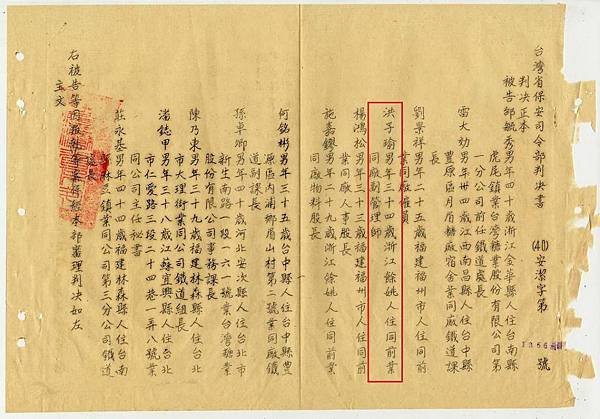 台灣省保安司令部判決書　(40)安潔字第　號
1856
判決正本
被告邱毓秀男年四十歲浙江金華縣人住台南縣
虎尾鎮業台灣糖業股份有限公司第
一分公司前任鐵道處長
雷大劭男年卅四歲江西南昌縣人住台中縣
豐原區月眉糖廠宿舍業同廠鐵道課
長
劉景祥男年二十五歲福建福州市人住同前
業同廠雇員
洪子瑜男年三十四歲浙江餘姚人住同前業
同廠副管理師
楊鴻松男年三十三歲福建福州市人住同前
業同廠人事股長
施嘉鑁男年三十二歲浙江餘姚人住同前業
同廠物料股長
何銘彬男年三十五歲台中縣人住台中縣豐
原區內浦鄉眉山村第二號業同廠鐵
道副課長
孫卓卿男年四十歲河北安次縣人住台北市
新生南路一段一六一號業台灣糖業
股份有限公司事務課長
陳乃東男年三十九歲福建林森縣人住台北
市大理街業同公司鐵道組長
潘誌甲男年三十八歲江蘇宜興縣人住台北
市仁愛路三段二十四巷一弄八號業
同公司主任秘書
莊永基男年四十四歲福建林森縣人住台南
縣麻豆鎮業同公司第三分公司鐵道
處長
右被告等因叛亂等案件經本部審理判決如左
主文